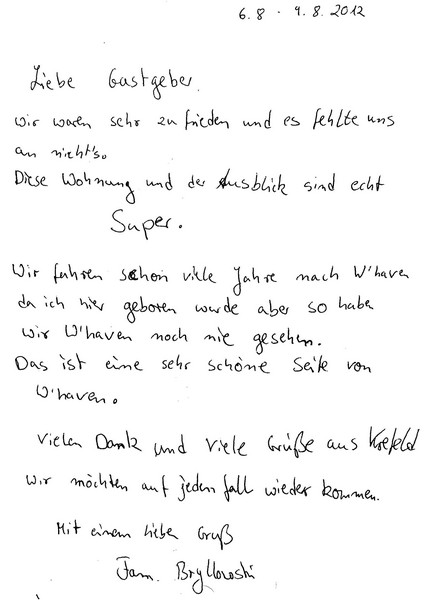 6.8 - 9.8.2012
Liebe Gastgeber,
wir waren sehr zufrieden und es fehlte uns
an nicht's.
Diese Wohnung und der Ausblick sind echt
Super.
Wir fahren schon viele Jahre nach W'haven
da ich hier geboren wurde aber so haben
wir W'haven noch nie gesehen.
Das ist eine sehr schöne Seite von
W'haven.
Vielen Dank und viele Grüße aus Krefeld
Wir möchten auf jeden fall wieder kommen.
Mit einem lieben Gruß
Fam.